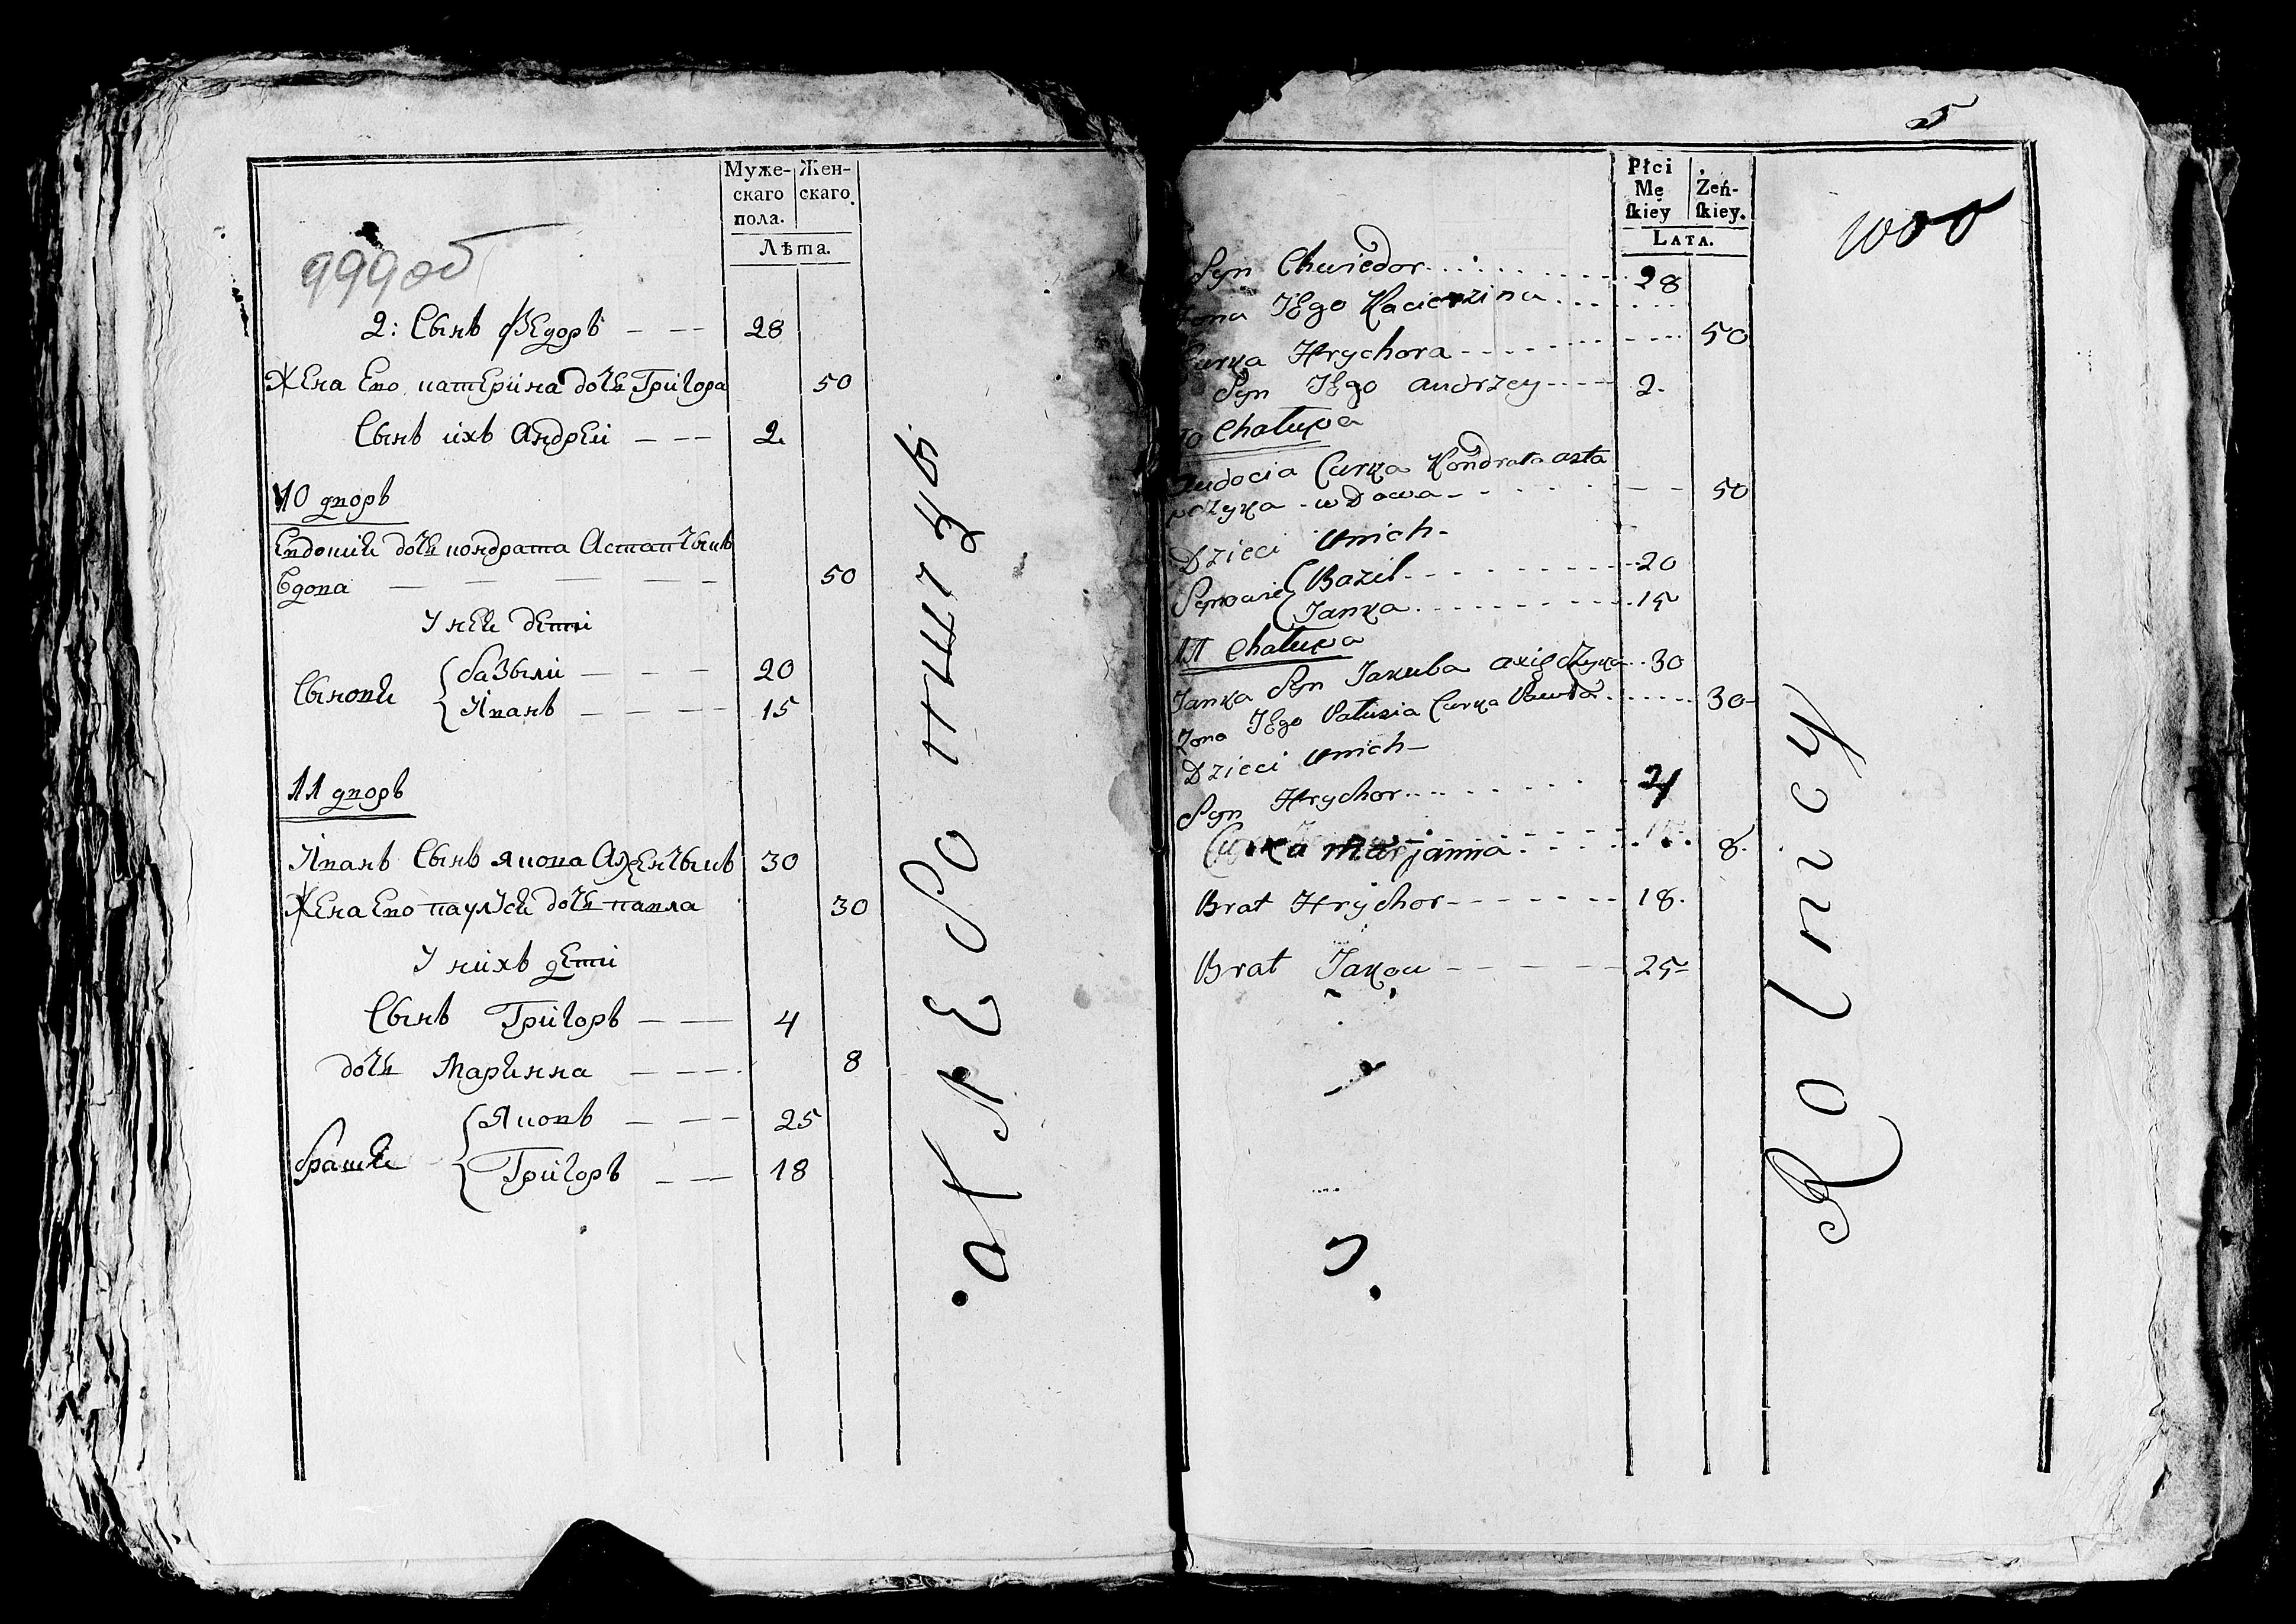 Муже-
скаго
пола.
Жен-
скаго.
Лѣта.
999 об
2: Сынъ Ѳедоръ - - - 28
Жена Ево катерина дочь Григора 50
Сынъ ихъ Андрей - - - 2
10 дворъ
Евдокия дочь кондрата Астапчыкъ
вдова - - - - - 50
У неи дети
Сынови { базыли - - - 20
Иванъ - - - 15
11 дворъ
Иванъ Сынъ якова 30
Жена Ево паулуся дочь павла 30
У нихъ дети
Сынъ Григоръ - - - 4
дочь Марянна - - - 8
братья { Яковъ - - - 25
Григоръ - - - 18
5
1000
Płci
Mę
skiey
Żeń-
skiey.
LATA.
Syn Chwiedor 28
Zona JEgo Kacierzina
Curka Hrychora 50
Syn JEgo Andrzey 2.
10 Chałupa
Audocia Curka Kondrata asta
pczyka - wdowa 50
Dzieci unich -
Synowie { Bazil 20
Janka 15
11 Chałupa
Janka Syn Jakuba 30
Zona JEgo Palusia Curka Pawła 30
Dzieci unich -
Syn Hrychor 4
Curka Marjanna 8.
Brat Hrychor 18.
Brat Jakow 25
Rolnicy